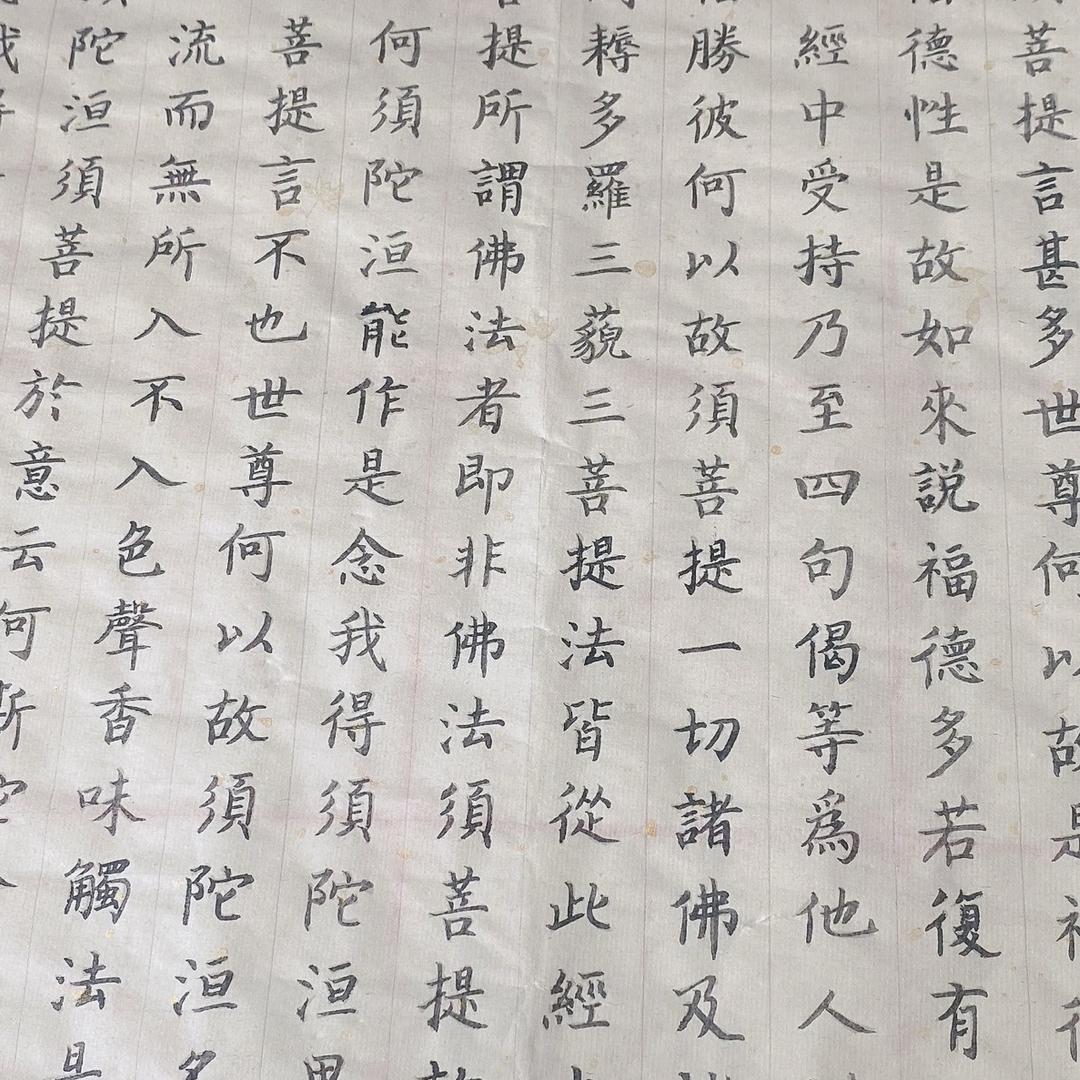 菩提言甚多世尊何以故是
德性是故如來說福德多若復有
經中受持乃至四句偈等爲他人
勝彼何以故須菩提一切諸佛及
耨多羅三藐三菩提法皆從此經
提所謂佛法者即非佛法須菩提
何須陀洹能作是念我得須陀洹
菩提言不也世尊何以故須陀洹
流而無所入不入色聲香味觸法
陀洹須菩提於意云何斯